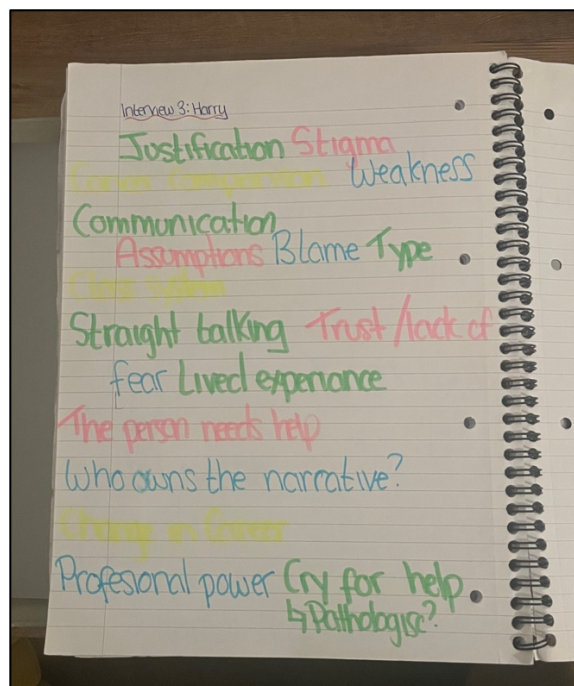 Interview 3: Harry
Justification Stigma
Career Comparison Weakness
Communication
Assumptions Blame Type
Class system
Straight talking Trust /lack of
fear Lived experiance
The person needs help
Who owns the narrative?
Change in Career
Profesional power Cry for help
↳Pathologise?